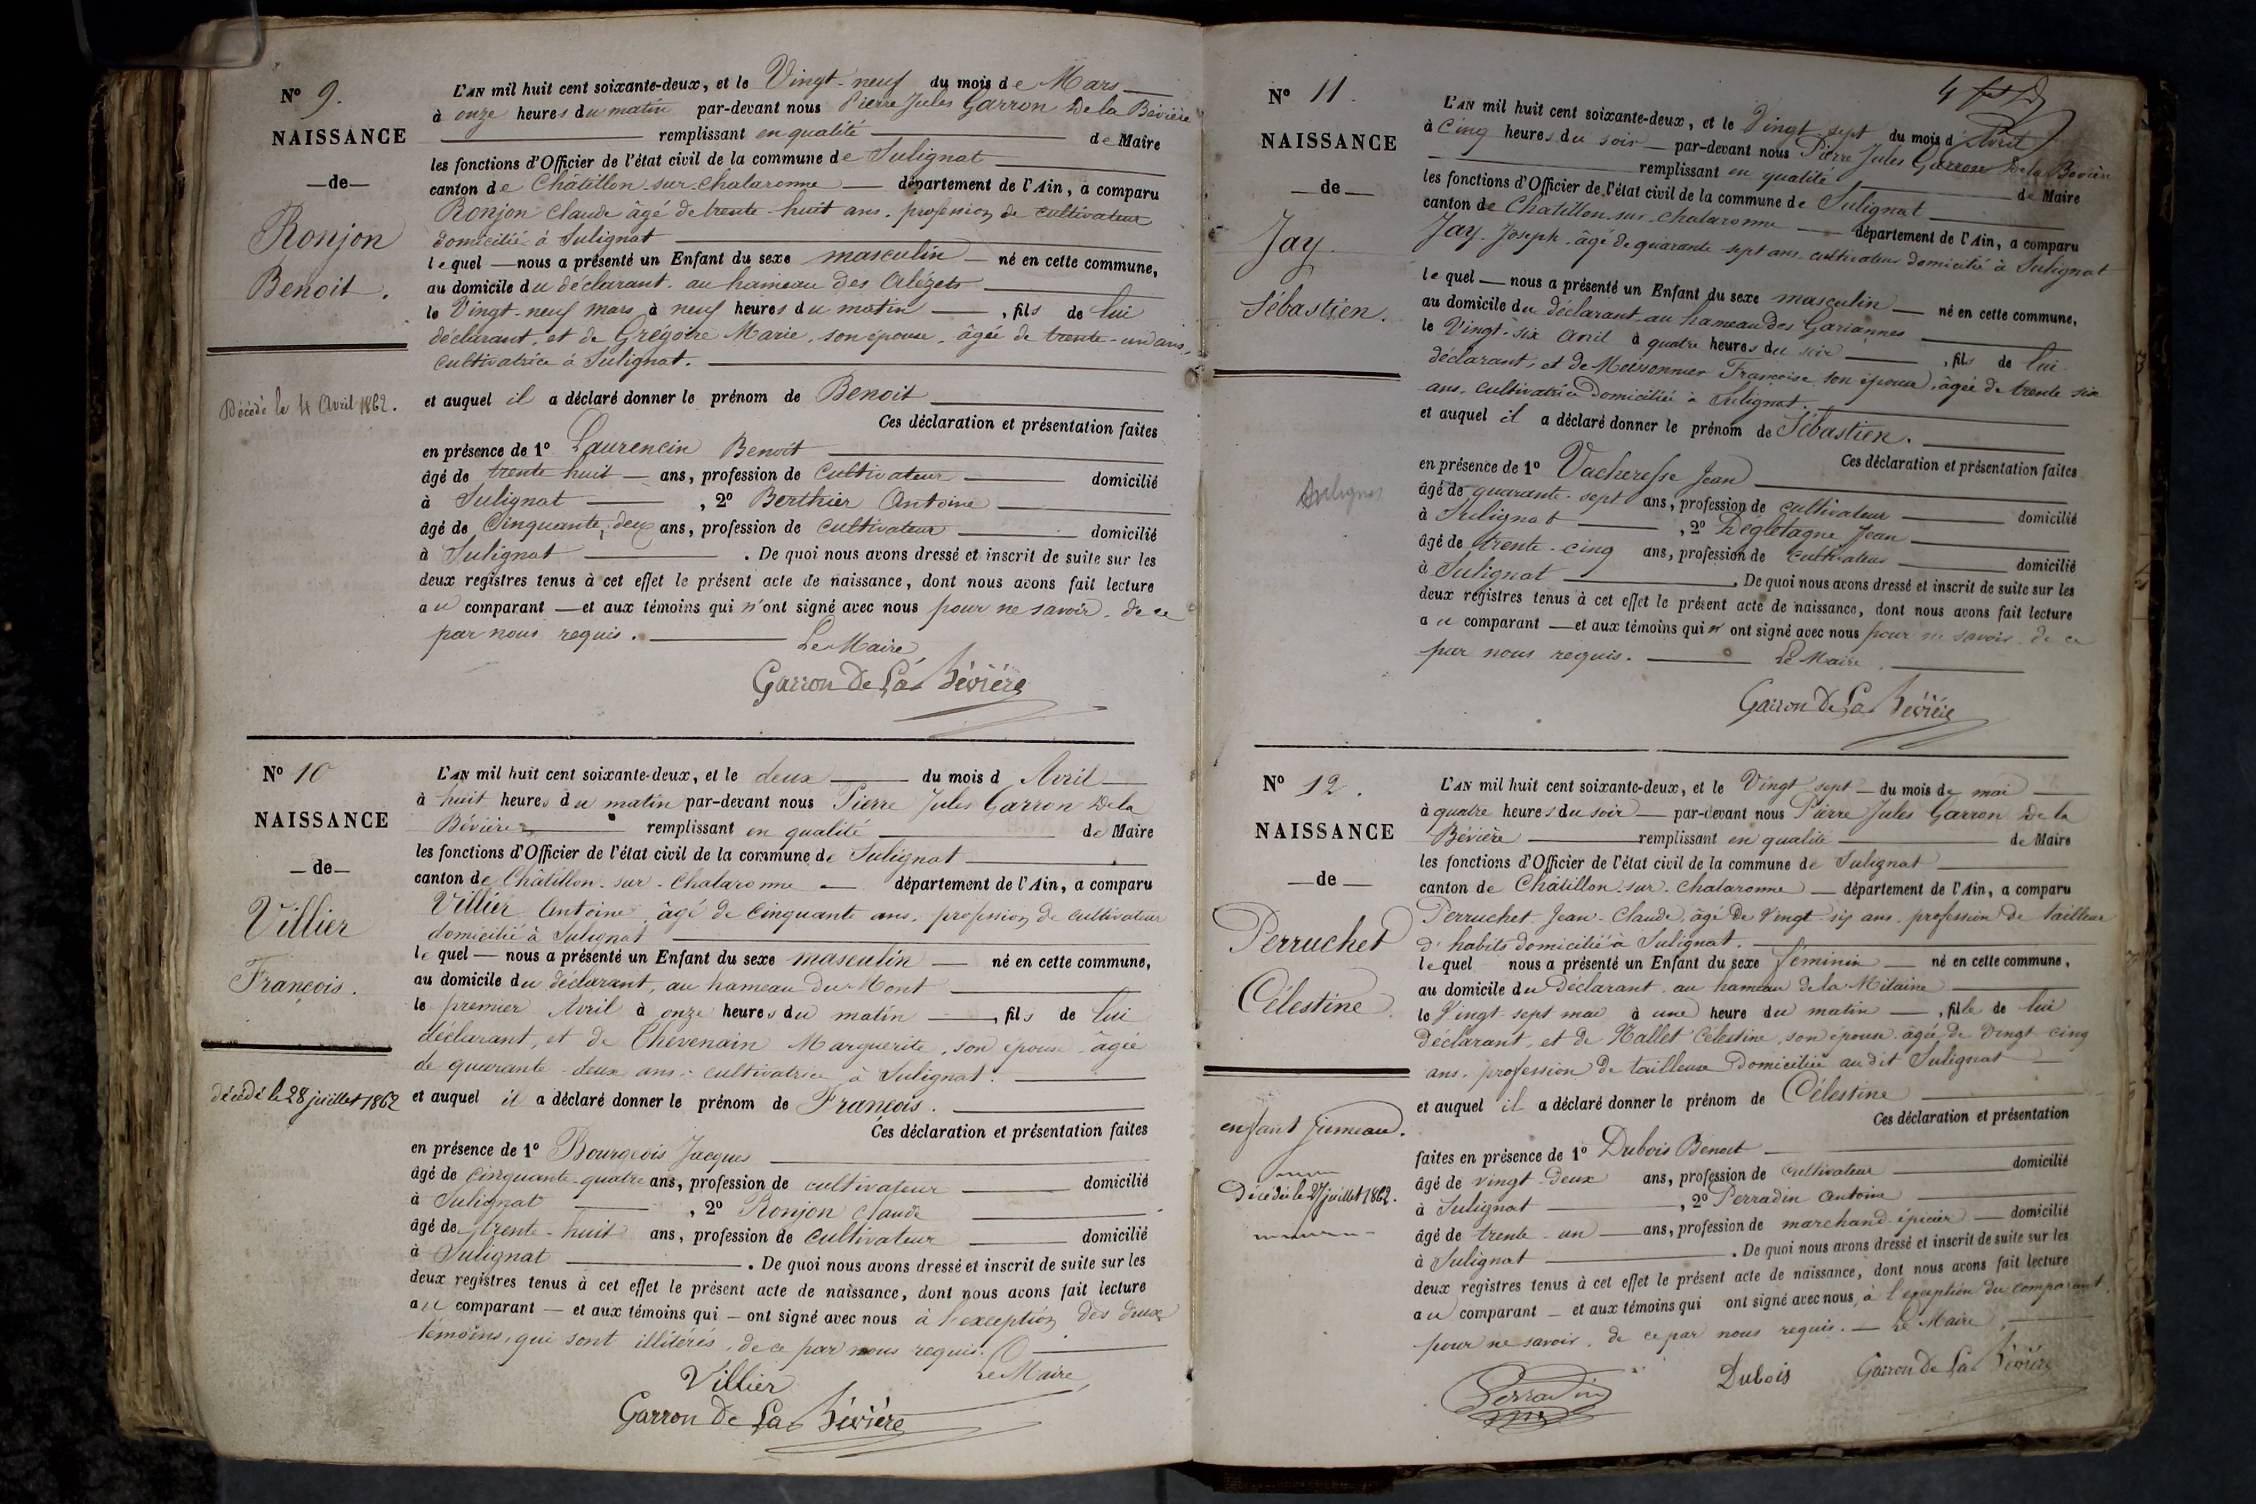 N° 9.
NAISSANCE
—de—
Ronjon
Benoit.
Décédé le 4 Avril 1862.
L'AN mil huit cent soixante-deux, et le Vingt-neuf du mois de Mars
à onze heures du matin par-devant nous Pierre Jules Garron De la Bévière
remplissant en qualité de Maire
les fonctions d'Officier de l'état civil de la commune de Sulignat
canton de Châtillon-sur-chalaronne département de l'Ain, a comparu
Ronjon Claude âgé de trente-huit ans, profession de cultivateur
domicilié à Sulignat
lequel nous a présenté un Enfant du sexe masculin né en cette commune,
au domicile du déclarant au hameau des
le Vingt-neuf mars à neuf heures du matin, fils de lui
déclarant, et de Grégoire Marie, son épouse, âgée de trente-un ans,
cultivatrice à Sulignat.
et auquel il a déclaré donner le prénom de Benoit
Ces déclaration et présentation faites
en présence de 1° Laurencin Benoit
âgé de trente huit ans, profession de cultivateur domicilié
à Sulignat, 2° Berthier Antoine
âgé de Cinquante-deux ans, profession de cultivateur domicilié
à Sulignat. De quoi nous avons dressé et inscrit de suite sur les
deux registres tenus à cet effet le présent acte de naissance, dont nous avons fait lecture
au comparant et aux témoins qui n'ont signé avec nous pour ne savoir, de ce
par nous requis.
Le Maire
Garron De La Bévière
N° 10
NAISSANCE
—de—
Villier
François.
décédé le 28 juillet 1862
L'AN mil huit cent soixante-deux, et le deux du mois d Avril
à huit heures du matin par-devant nous Pierre Jules Garron De la
Bévière remplissant en qualité de Maire
les fonctions d'Officier de l'état civil de la commune de Sulignat
canton de Châtillon-sur-chalaronne département de l'Ain, a comparu
Villier Antoine, âgé de Cinquante ans, profession de cultivateur
domicilié à Sulignat
lequel nous a présenté un Enfant du sexe masculin né en cette commune,
au domicile du déclarant, au hameau du Mont
le premier Avril à onze heures du matin, fils de lui
déclarant, et de Chevenain Marguerite, son épouse âgée
de quarante-deux ans, cultivatrice à Sulignat.
et auquel il a déclaré donner le prénom de François.
Ces déclaration et présentation faites
en présence de 1° Bourgeois Jacques
âgé de cinquante-quatre ans, profession de cultivateur domicilié
à Sulignat, 2° Ronjon Claude
âgé de trente-huit ans, profession de cultivateur domicilié
à Sulignat. De quoi nous avons dressé et inscrit de suite sur les
deux registres tenus à cet effet le présent acte de naissance, dont nous avons fait lecture
au comparant et aux témoins qui ont signé avec nous à l'exception des deux
témoins, qui sont illitérés, de ce par nous requis.
Le Maire
Villier
Garron De La Bévière
4
N° 11.
NAISSANCE
—de—
Jay
Sébastien.
Sulignat
L'AN mil huit cent soixante-deux, et le Vingt-sept du mois d'Avril
à Cinq heures du soir par-devant nous Pierre Jules Garron De la Bévière
remplissant en qualité de Maire
les fonctions d'Officier de l'état civil de la commune de Sulignat
canton de Chatillon-sur-chalaronne département de l'Ain, a comparu
Jay Joseph, âgé de quarante-sept ans, cultivateur domicilié à Sulignat
lequel nous a présenté un Enfant du sexe masculin né en cette commune,
au domicile du déclarant au hameau des Gariannes
le Vingt-six avril à quatre heures du soir, fils de lui
déclarant, et de Meissonnier Françoise, son épouse, âgée de trente six
ans, cultivatrice Domiciliée à Sulignat.
et auquel il a déclaré donner le prénom de Sébastien.
Ces déclaration et présentation faites
en présence de 1° Vacheresse Jean
âgé de quarante-sept ans, profession de cultivateur domicilié
à Sulignat, 2° Dégletagne Jean
âgé de trente-cinq ans, profession de cultivateur domicilié
à Sulignat. De quoi nous avons dressé et inscrit de suite sur les
deux registres tenus à cet effet le présent acte de naissance, dont nous avons fait lecture
au comparant et aux témoins qui n'ont signé avec nous pour ne savoir, de ce
par nous requis. Le Maire.
Garron De La Bévière
N° 12.
NAISSANCE
—de—
Perruchet
Célestine
enfant jumeau.
Décédée le 27 juillet 1862.
L'AN mil huit cent soixante-deux, et le Vingt sept du mois de mai
à quatre heures du soir par-devant nous Pierre Jules Garron De la
Bévière remplissant en qualité de Maire
les fonctions d'Officier de l'état civil de la commune de Sulignat
canton de Châtillon-sur-chalaronne département de l'Ain, a comparu
Perruchet Jean-Claude, âgé de Vingt-six ans, profession de tailleur
d'habits domicilié à Sulignat.
lequel nous a présenté un Enfant du sexe féminin né en cette commune,
au domicile du Déclarant au hameau de la Mitaine
le Vingt-sept mai à une heure du matin, fille de lui
Déclarant, et de Hallet Célestine, son épouse âgée de vingt cinq
ans, profession De tailleuse Domiciliée au dit Sulignat
et auquel il a déclaré donner le prénom de Célestine
Ces déclaration et présentation
faites en présence de 1° Dubois Benoit
âgé de vingt-deux ans, profession de cultivateur domicilié
à Sulignat, 2° Perradin Antoine
âgé de trente-un ans, profession de marchand épicier domicilié
à Sulignat. De quoi nous avons dressé et inscrit de suite sur les
deux registres tenus à cet effet le présent acte de naissance, dont nous avons fait lecture
au comparant et aux témoins qui ont signé avec nous, à l'exception du comparant,
pour ne savoir, de ce par nous requis. Le Maire,
Perradin Dubois Garron De La Bévière